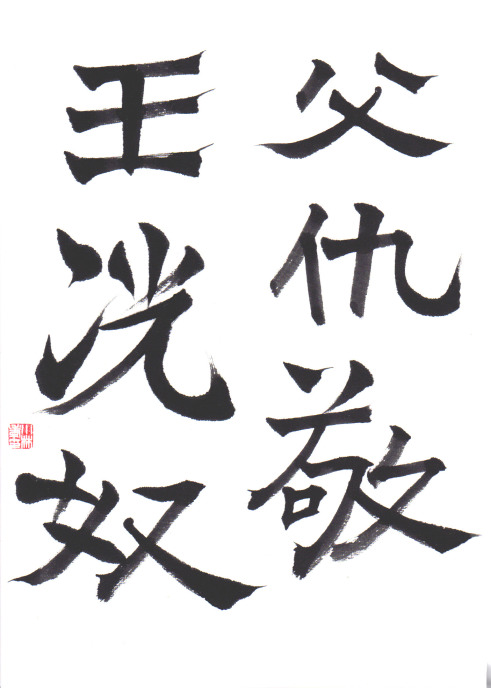 父仇敬
王洸奴